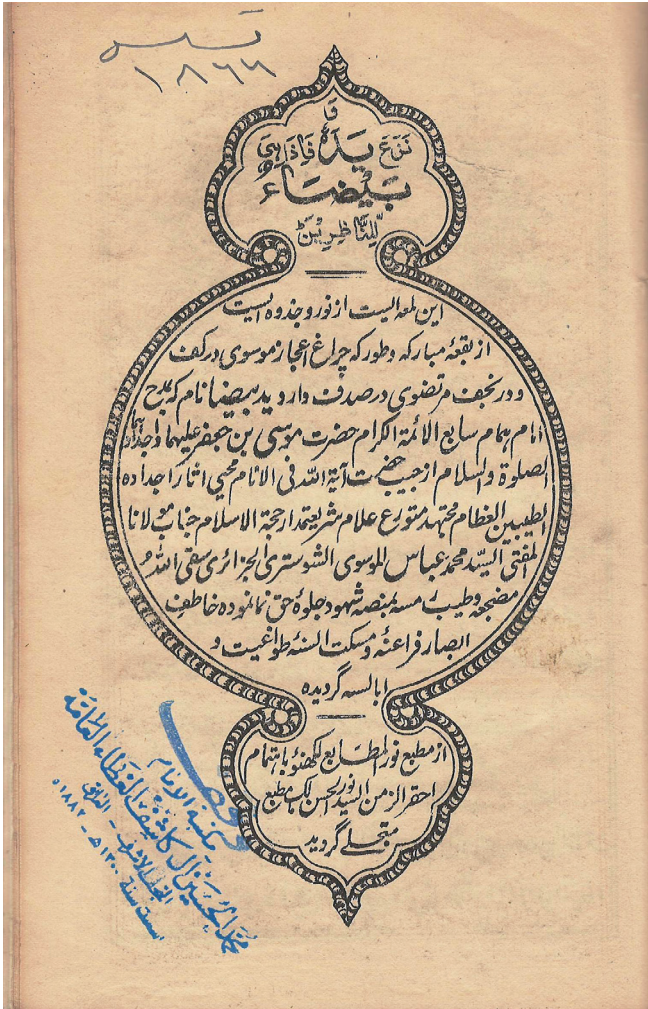 ١٨٦٦
وَ
نَزَعَ يَدَهُ فَاِذَا هِيَ
بَيْضَاءُ
لِلنَّاظِرِيْنَ
این لمعه ایست از نور و جذوه ایست
از بقعۀ مبارکه وطور که چراغ اعجاز موسوی در کف
و در نجف مرتضوی در صدف دارد ید بیضا نام که بمدح
امام ہمام سابع الائمة الکرام حضرت موسی بن جعفر علیهما و اجدادہما
الصلوة والسلام از جیب حضرت آیة اللّٰہ فی الانام محیی اثار اجداده
الطیبین العظام مجتہد متورع علام شریعتمدار حجة الاسلام جناب مولانا
المفتی السیّد محمد عباس الموسوی الشوستری الجزائری سقی اللّٰہ
مضجعه وطیب رمسه بمنصہ شهود جلوۀ حق نما نموده خاطف
ابصار فراعنہ و مسکت السنۀ طواغیت و
ابالسه گردیده
از مطبع نور المطابع لکھنؤ باہتمام
احقر الزمن السید نور الحسن مالک مطبع
متجلے گردید
مكتبة الامام
محمد الحسين آل كاشف الغطاء العامة
النجف الاشرف - العراق
اسست سنة ١٣٠٠ هـ - ١٨٨٢ م